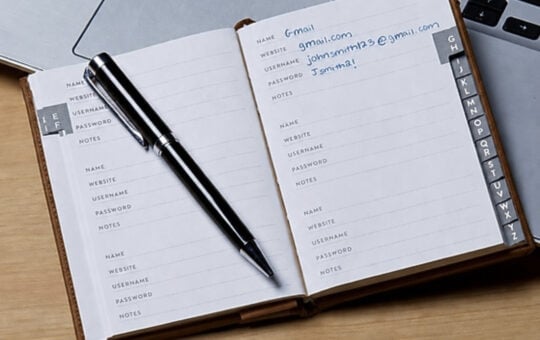 NAME
WEBSITE
USERNAME
PASSWORD
NOTES
NAME
WEBSITE
USERNAME
PASSWORD
NOTES
NAME
WEBSITE
USERNAME
PASSWORD
NOTES
E
F
NAME Gmail
WEBSITE gmail.com
USERNAME johnsmith123@gmail.com
PASSWORD Jsmith21
NOTES
NAME
WEBSITE
USERNAME
PASSWORD
NOTES
NAME
WEBSITE
USERNAME
PASSWORD
NOTES
GH
J
K
L
M
N
O
P
Q
R
S
T
U
V
W
X
Y
Z